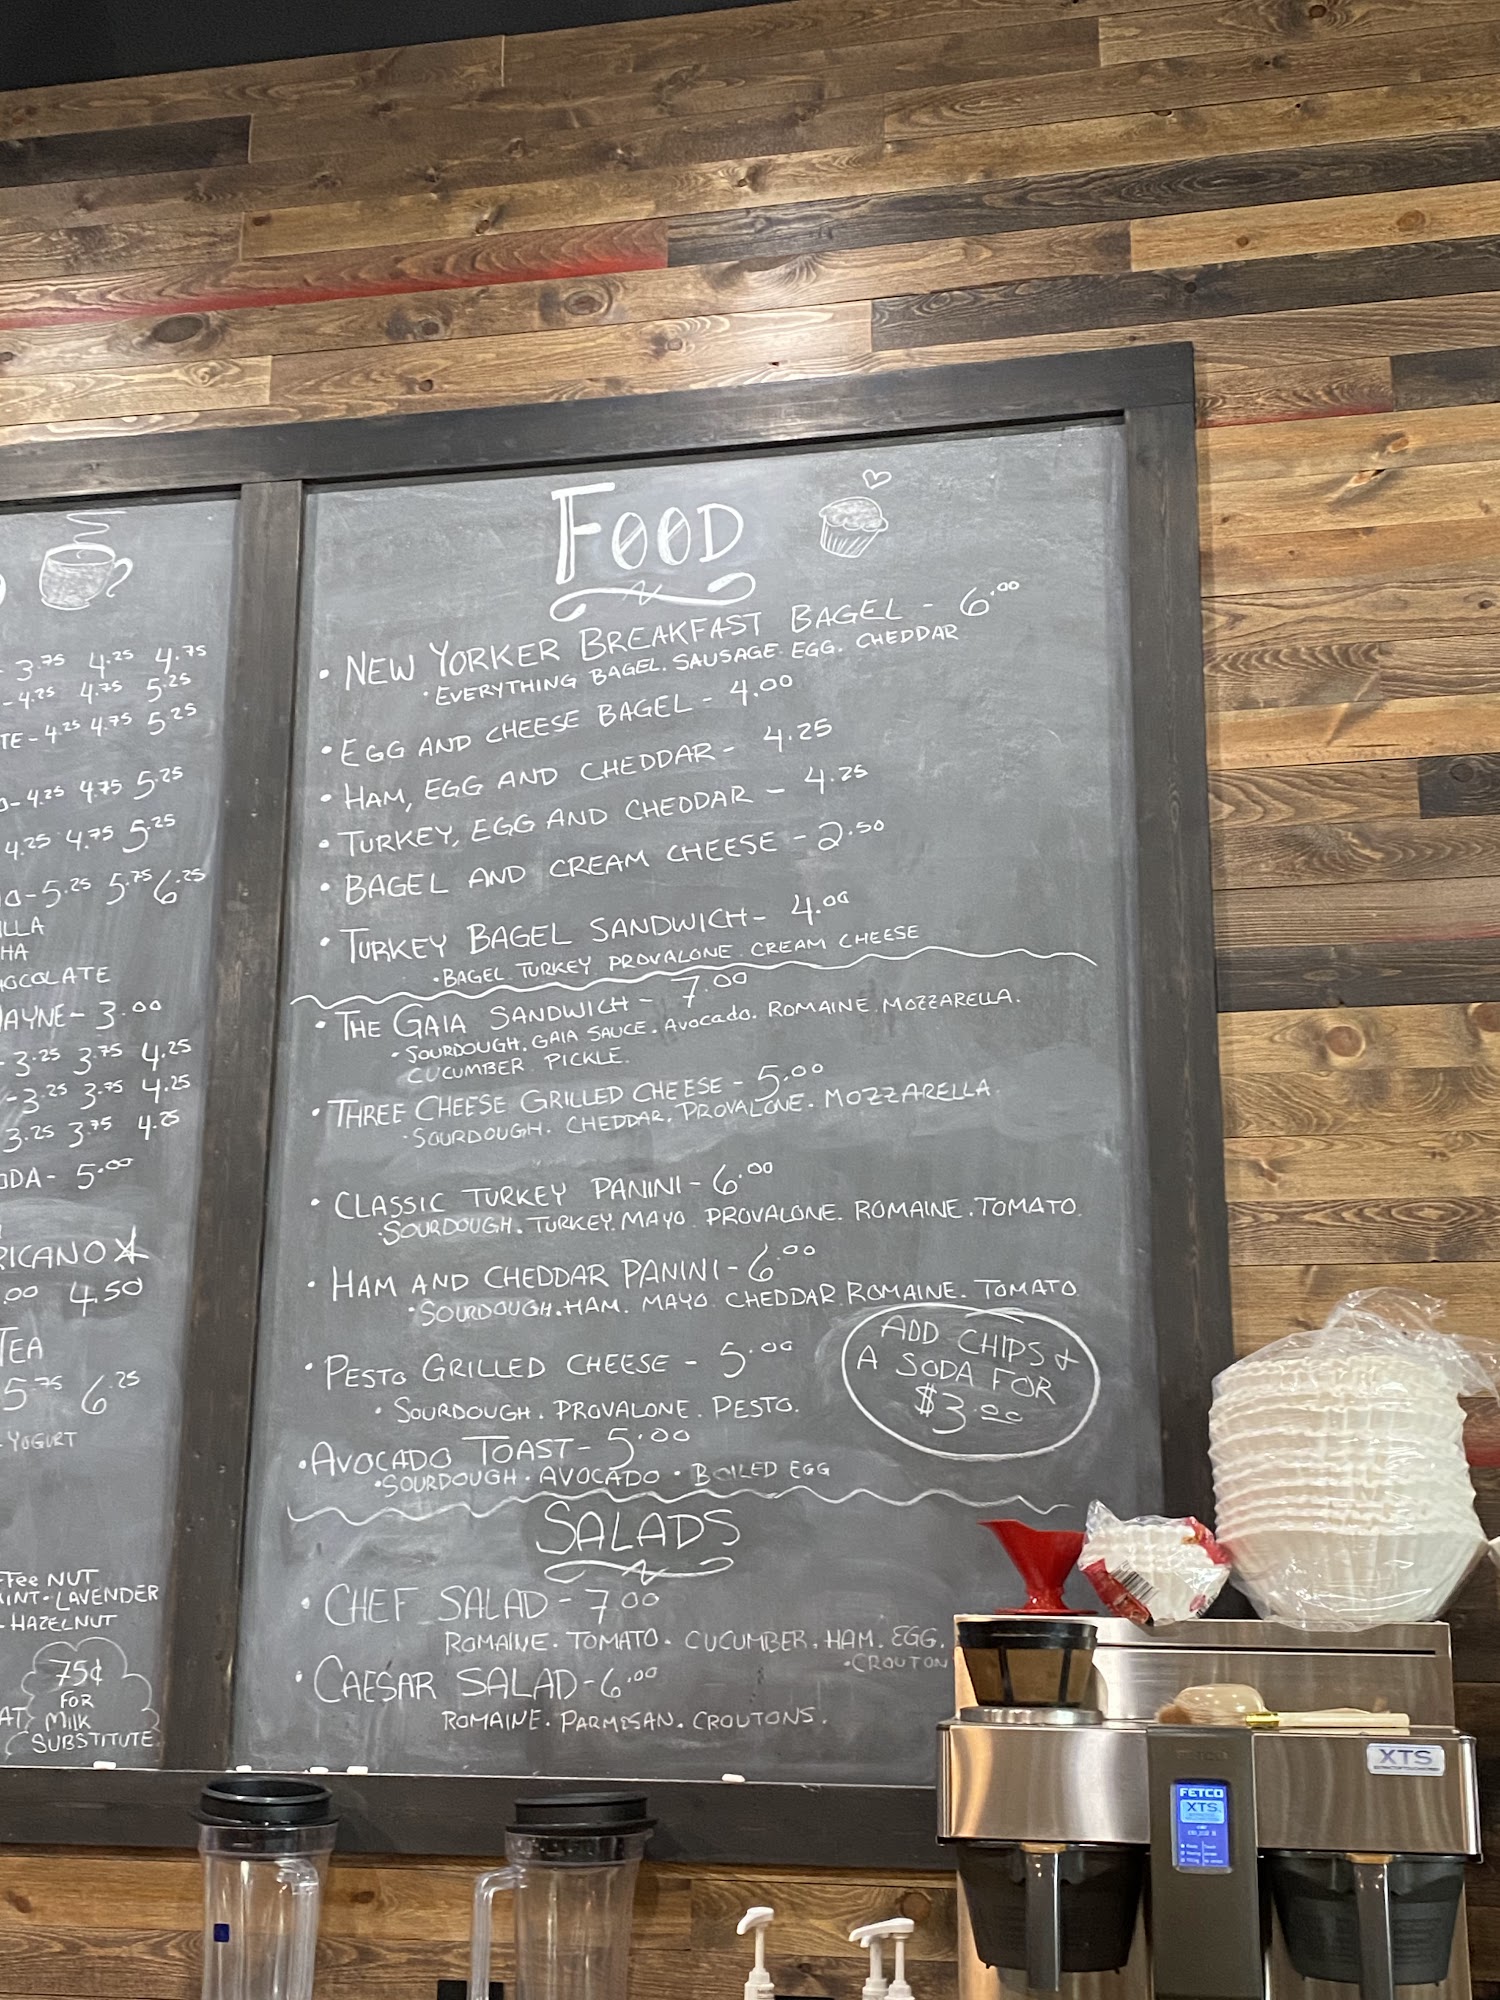 3.75 4.25 4.75
-4.25 4.75 5.25
TE-4.25 4.75 5.25
-4.25 4.75 5.25
4.25 4.75 5.25
O-5.25 5.75 6.25
ILLA
HA
HOCOLATE
AYNE- 3.00
-3.25 3.75 4.25
-3.25 3.75 4.25
3.25 3.75 4.25
ODA- 5.00
RICANO
.00 4.50
TEA
5.75 6.25
-YOGURT
FFEE NUT
INT·LAVENDER
-HAZELNUT
75¢
FOR
MILK
SUBSTITUTE
AT
FOOD
• NEW YORKER BREAKFAST BAGEL - 6.00
• EVERYTHING BAGEL. SAUSAGE. EGG. CHEDDAR
• EGG AND CHEESE BAGEL - 4.00
• HAM, EGG AND CHEDDAR - 4.25
• TURKEY, EGG AND CHEDDAR - 4.25
• BAGEL AND CREAM CHEESE - 2.50
• TURKEY BAGEL SANDWICH - 4.00
• BAGEL. TURKEY. PROVALONE. CREAM CHEESE
• THE GAIA SANDWICH - 7.00
• SOURDOUGH. GAIA SAUCE. AVOCADO. ROMAINE. MOZZARELLA.
CUCUMBER PICKLE.
• THREE CHEESE GRILLED CHEESE - 5.00
• SOURDOUGH. CHEDDAR. PROVALONE. MOZZARELLA.
• CLASSIC TURKEY PANINI - 6.00
• SOURDOUGH. TURKEY. MAYO. PROVALONE. ROMAINE. TOMATO.
• HAM AND CHEDDAR PANINI - 6.00
• SOURDOUGH. HAM. MAYO. CHEDDAR. ROMAINE. TOMATO
• PESTO GRILLED CHEESE - 5.00
• SOURDOUGH. PROVALONE. PESTO.
ADD CHIPS &
A SODA FOR
$3.00
• AVOCADO TOAST - 5.00
• SOURDOUGH • AVOCADO • BOILED EGG
SALADS
• CHEF SALAD - 7.00
ROMAINE. TOMATO. CUCUMBER. HAM. EGG.
• CROUTON
• CAESAR SALAD - 6.00
ROMAINE. PARMESAN. CROUTONS.
XTS
FETCO
XTS